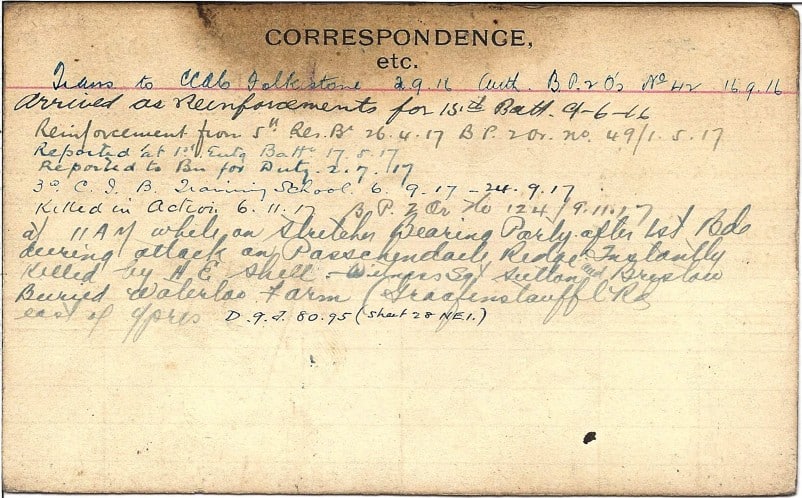 CORRESPONDENCE,
etc.
Trans to CCAC Folkstone 2.9.16 Auth. B.P.2 O's No 42 16.9.16
Arrived as Reinforcements for 15th Batt. 9-6-16
Reinforcement from 5th Res. Bn 26.4.17 B.P.2 Or. no. 49/1.5.17
Reported at 1st Entg Battn 17.5.17
Reported to Bn for Duty. 2.7.17
3rd C.I.B. Training School. 6.9.17-24.9.17
Killed in Action 6.11.17 B.P.2 Or No 124/9.11.17
at 11AM while on Stretcher Bearing Party after 1st Bde
during attack on Passchendaele Ridge. Instantly
Killed by H.E. Shell - Witness Sgt Sutton and Bristow
Buried Waterloo Farm (Graafenstauffl Rd
east of Ypres D.9.d.80.95 (Sheet 28 NE1.)